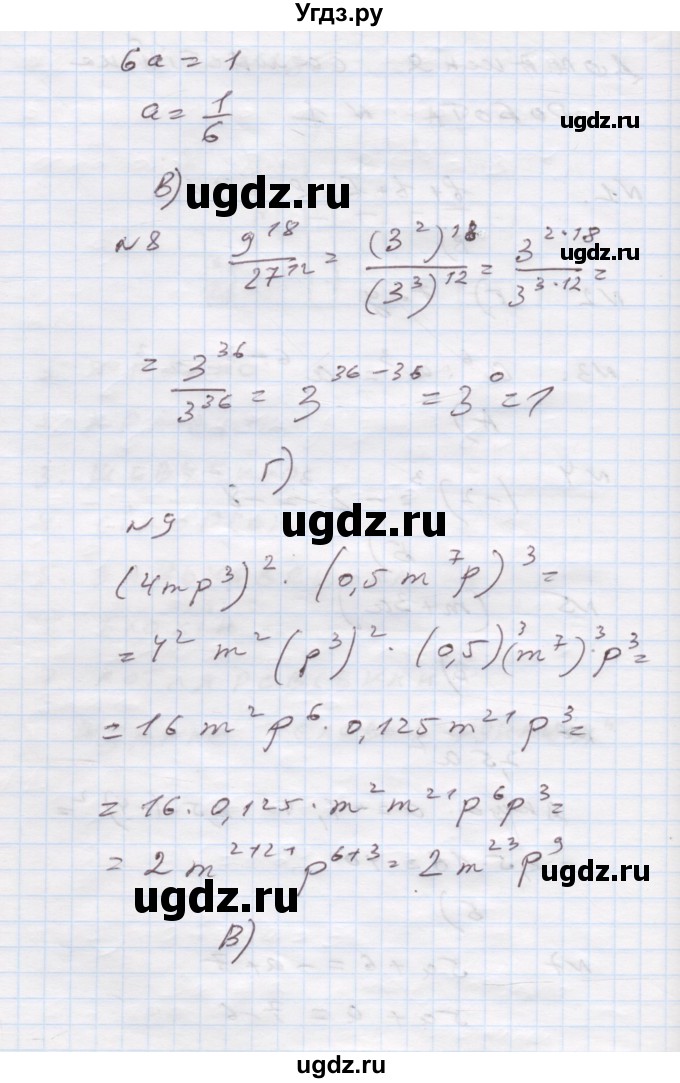 Угдз.ру
6a = 1
a = 1/6
ugdz.ru
В)
ugdz.ru
№8 9^18/27^12 = (3^2)^18/(3^3)^12 = 3^(2·18)/3^(3·12) =
= 3^36/3^36 = 3^(36-36) = 3^0 = 1
Г)
№9
ugdz.ru
ugdz.ru
(4mp^3)^2 · (0,5 m^7 p)^3 =
= 4^2 m^2 (p^3)^2 · (0,5)^3 (m^7)^3 · p^3 =
= 16 m^2 p^6 · 0,125 m^21 p^3 =
= 16 · 0,125 · m^2 m^21 p^6 p^3 =
= 2 m^(2+21) p^(6+3) = 2 m^23 p^9
ugdz.ru
ugdz.ru
В)
ugdz.ru